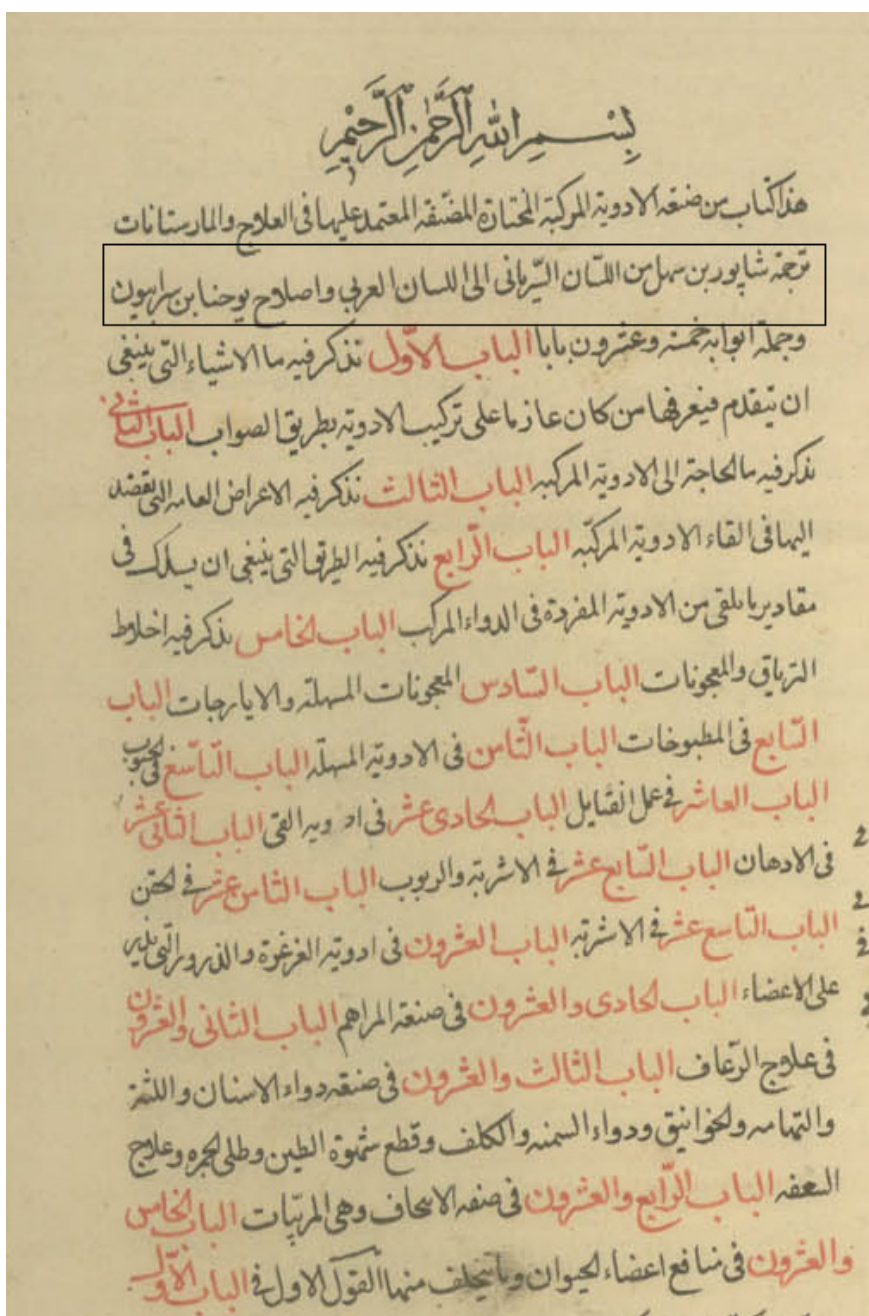 بِسْمِ اللهِ الرَّحْمٰنِ الرَّحِيْمِ
هذا كتاب من صنعه الادوية المركبة المختارة المصنفه المعتمد عليها فى العلاج والمارستانات
ترجمة شاپور بن سهل من اللسان السّريانى الى اللسان العربي واصلاح يوحنا بن سرابيون
وجملة ابوابه خمسة وعشرون بابا الباب الاوّل نذكر فيه ما الاشياء التى ينبغى
ان يتقدم فيعرفها من كان عازما على تركيب الادوية بطريق الصواب الباب الثانى
نذكر فيه ما الحاجة الى الادوية المركبه الباب الثالث نذكر فيه الاعراض العامه التى يقصد
اليها فى القاء الادوية المركّبه الباب الرّابع نذكر فيه الطرق التى ينبغى ان يسلك فى
مقادير ما يلقى من الادوية المفردة فى الدواء المركب الباب الخامس نذكر فيه اخلاط
الترياق والمعجونات الباب السّادس المعجونات المسهلة والايارجات الباب
السّابع فى المطبوخات الباب الثّامن فى الادوية المسهلّه الباب التّاسع فى الحبوب
الباب العاشر فى عمل الفتايل الباب الحادى عشر فى ادويه القى الباب الثانى عشر
فى الادهان الباب السّابع عشر فى الاشربة والربوب الباب الثامن عشر فى الحقن
الباب التّاسع عشر فى الاشربة الباب العشرون فى ادوية الغرغرة والذرور التى يذر
على الاعضاء الباب الحادى والعشرون فى صنعة المراهم الباب الثانى والعشرون
فى علاج الرّعاف الباب الثالث والعشرون فى صنعة دواء الاسنان واللثة
واللهامه والخوانيق ودواء السمنه والكلف وقطع شهوة الطين وطلى الجمره وعلاج
السعفه الباب الرّابع والعشرون فى صنعه وهى المربّيات الباب الخامس
والعشرون فى منافع اعضاء الحيوان وما يتحلف منها القول الاول فى الباب الاوّل